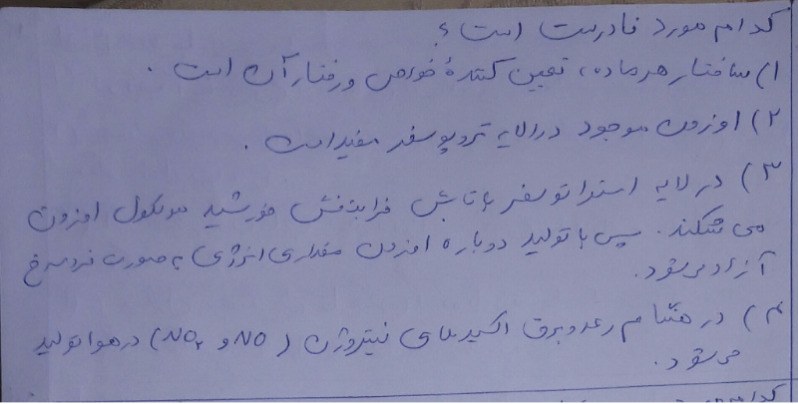 کدام مورد نادرست است؟
۱) ساختار هر ماده، تعیین کنندهٔ خواص و رفتار آن است.
۲) اوزون موجود در لایه تروپوسفر مفید است.
۳) در لایه استراتوسفر، تابش فرابنفش خورشید مولکول اوزون
می شکند. سپس با تولید دوباره اوزون مقداری انرژی به صورت فروسرخ
آزاد می‌شود.
۴) در هنگام رعد و برق اکسیدهای نیتروژن (NO و NO₂) در هوا تولید
می‌شود.